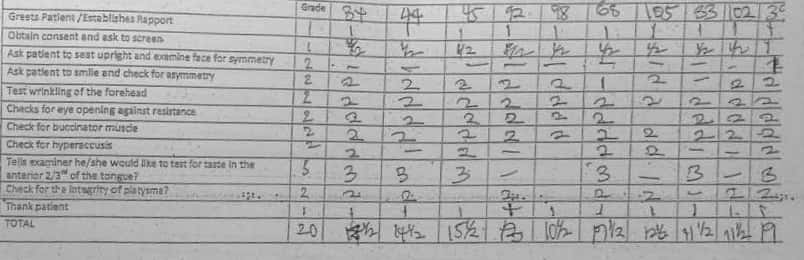 Grade 34 44 45 92 98 68 105 33 102
Greets Patient /Establishes Rapport 1 1 1 1 1 1 1 1 1
Obtain consent and ask to screen 1 ½ ½ ½ ½ ½ ½ ½ ½ 1
Ask patient to seat upright and examine face for symmetry 2 - - - - - - - - -
Ask patient to smile and check for asymmetry 2 2 2 2 2 2 1 2 - 2 2
Test wrinkling of the forehead 2 2 2 2 2 2 2 2 2 2 2
Checks for eye opening against resistance 2 2 2 2 2 2 2 2 2 2
Check for buccinator muscle 2 2 2 2 2 2 2 2 2 2 2
Check for hyperaccusis 2 2 - 2 - 2 2 - - 2
Tells examiner he/she would like to test for taste in the
anterior 2/3rd of the tongue? 5 3 3 3 - 3 - 3 - 3
Check for the integrity of platysma? 2 2 2 2 2 - 2 2
Thank patient 1 1 1 1 1 1 1 1 1
TOTAL 20 14½ 15½ 10½ 11½ 11½ 19